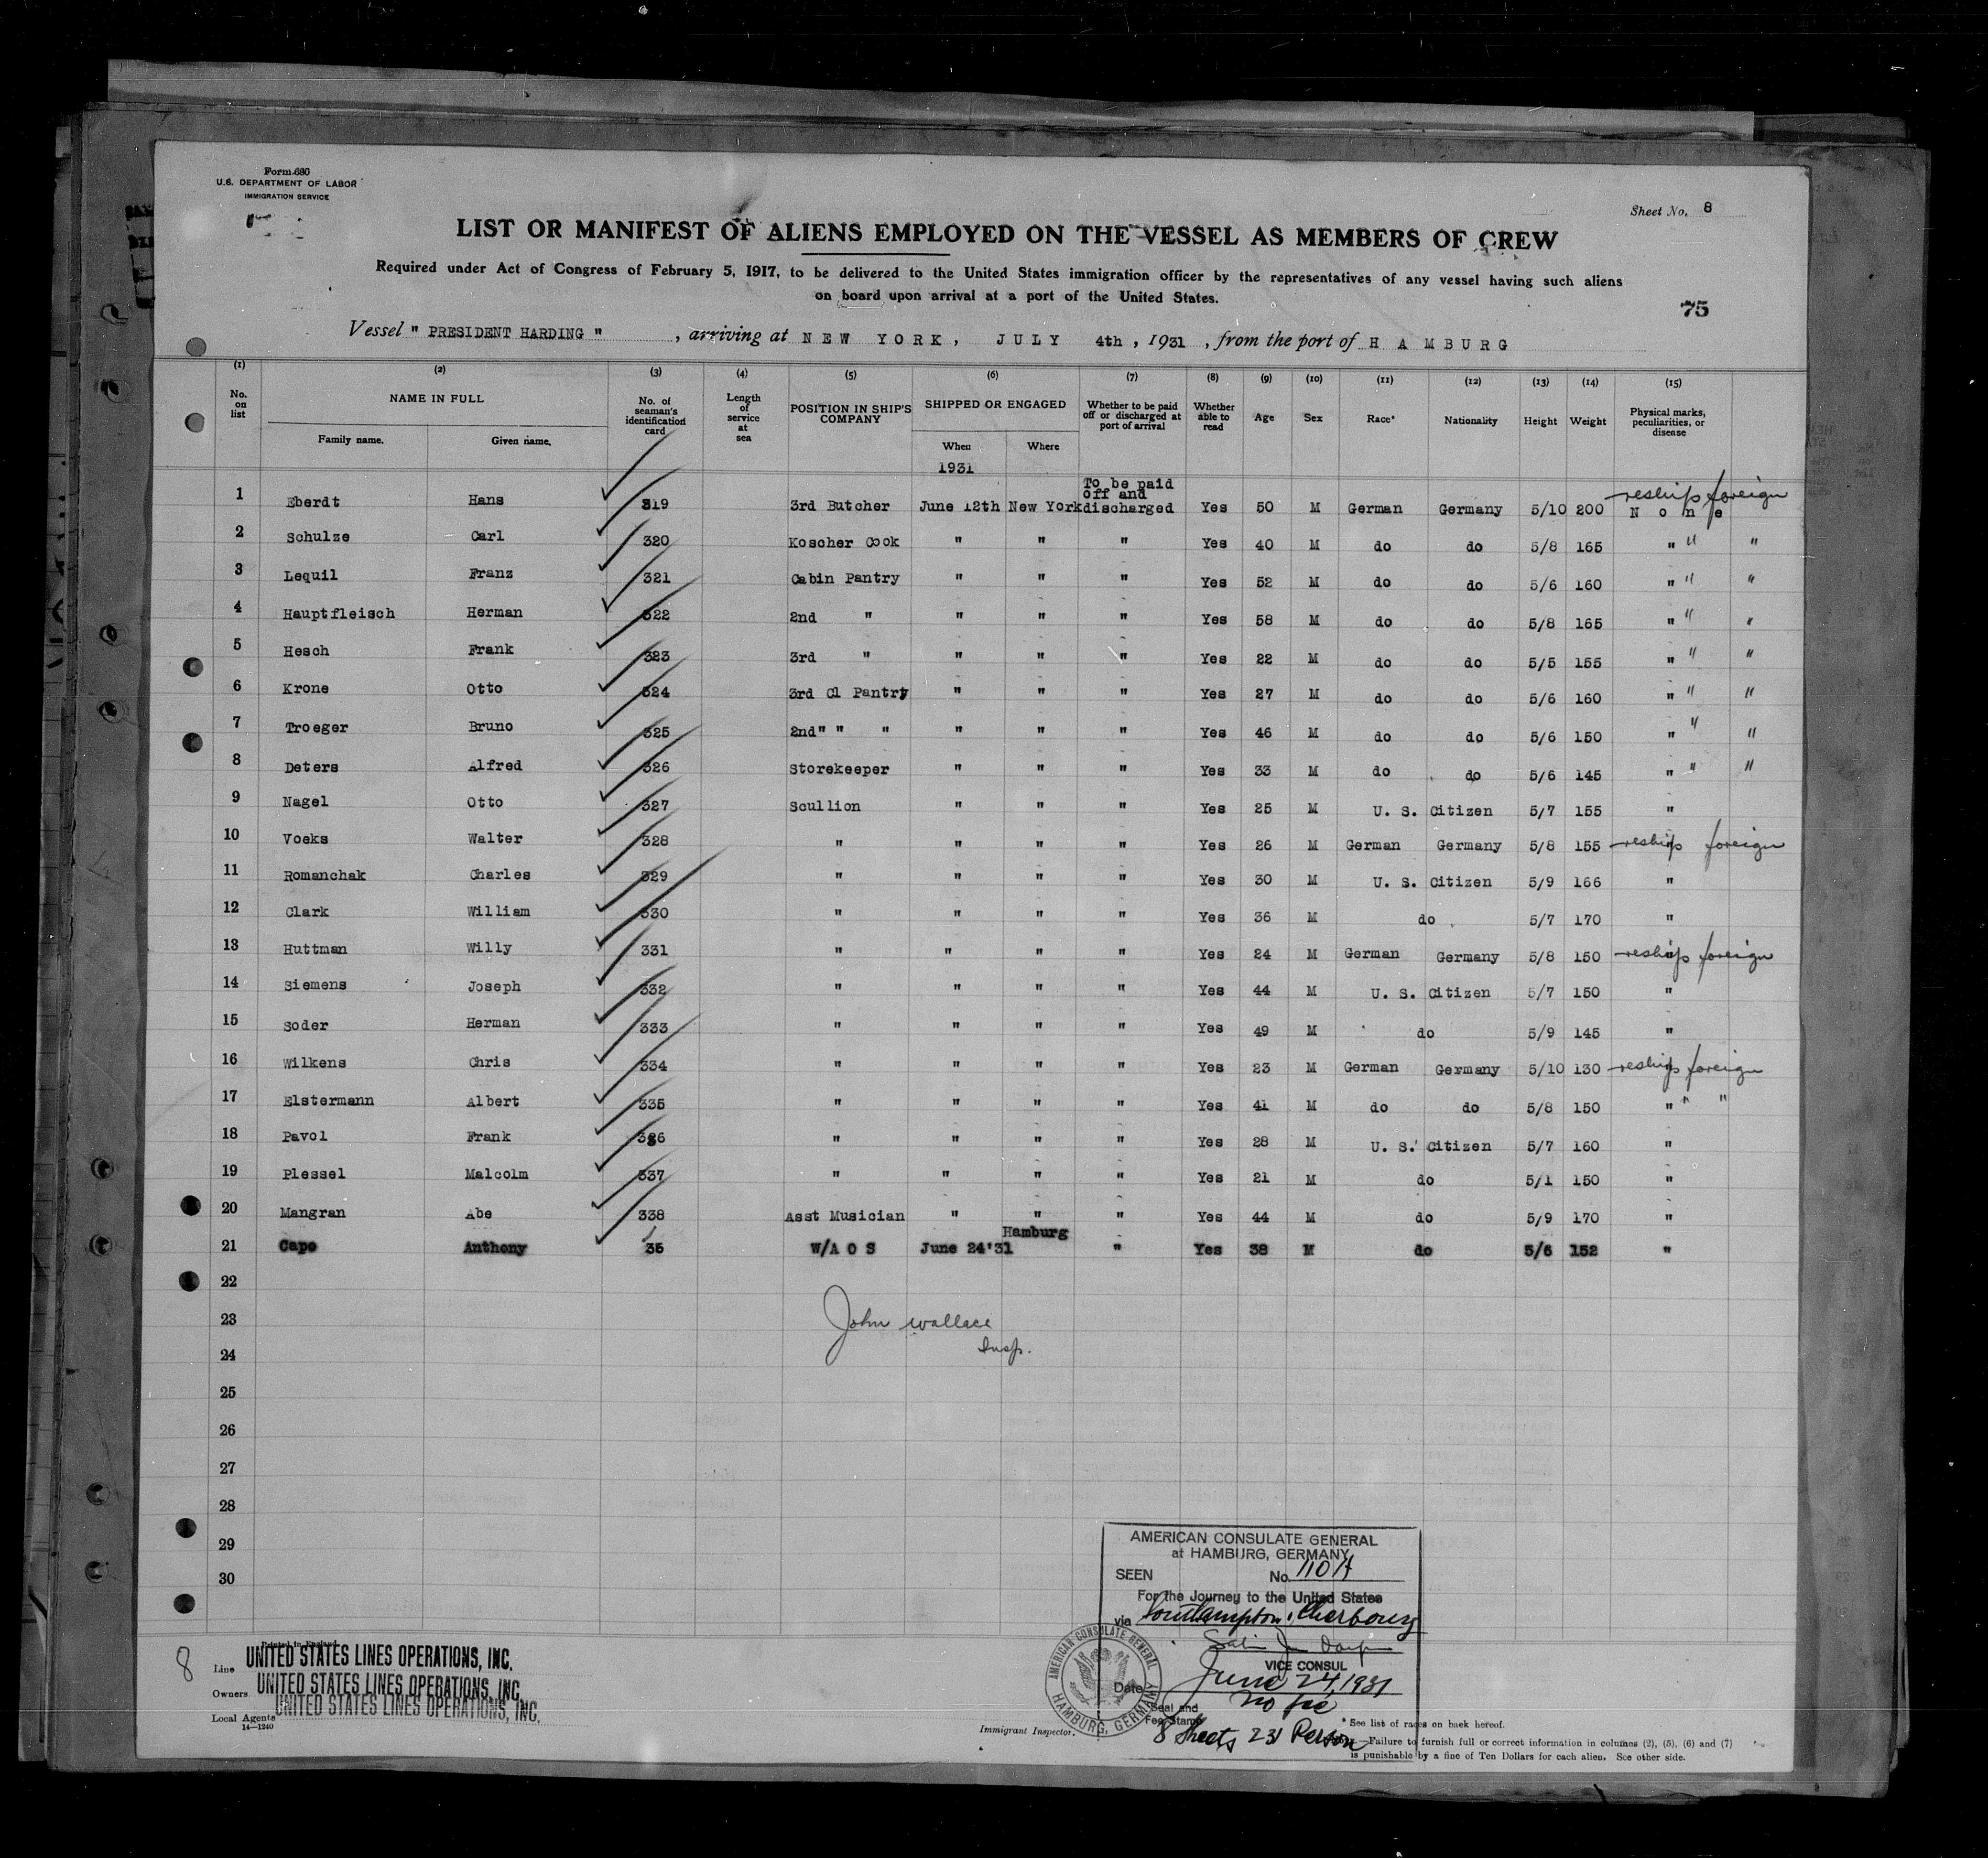 Form 680
U.S. DEPARTMENT OF LABOR
IMMIGRATION SERVICE
Sheet No. 8
LIST OR MANIFEST OF ALIENS EMPLOYED ON THE VESSEL AS MEMBERS OF CREW
Required under Act of Congress of February 5, 1917, to be delivered to the United States immigration officer by the representatives of any vessel having such aliens
on board upon arrival at a port of the United States.
75
Vessel " PRESIDENT HARDING " , arriving at NEW YORK, JULY 4th, 1931, from the port of HAMBURG
(1) (2) (3) (4) (5) (6) (7) (8) (9) (10) (11) (12) (13) (14) (15)
No. on list NAME IN FULL Family name. Given name. No. of seaman's identification card Length of service at sea POSITION IN SHIP'S COMPANY SHIPPED OR ENGAGED When Where Whether to be paid off or discharged at port of arrival Whether able to read Age Sex Race* Nationality Height Weight Physical marks, peculiarities, or disease
1931
1 Eberdt Hans 319 3rd Butcher June 12th New York To be paid off and discharged Yes 50 M German Germany 5/10 200 None reships foreign
2 Schulze Carl 320 Koscher Cook " " " Yes 40 M do do 5/8 165 " " "
3 Lequil Franz 321 Cabin Pantry " " " Yes 52 M do do 5/6 160 " " "
4 Hauptfleisch Herman 322 2nd " " " " Yes 58 M do do 5/8 165 " " "
5 Hesch Frank 323 3rd " " " " Yes 22 M do do 5/5 155 " " "
6 Krone Otto 324 3rd Cl Pantry " " " Yes 27 M do do 5/6 160 " " "
7 Troeger Bruno 325 2nd " " " " " " Yes 46 M do do 5/6 150 " " "
8 Deters Alfred 326 Storekeeper " " " Yes 33 M do do 5/6 145 " " "
9 Nagel Otto 327 Scullion " " " Yes 25 M U. S. Citizen 5/7 155 "
10 Voeks Walter 328 " " " " Yes 26 M German Germany 5/8 155 reships foreign
11 Romanchak Charles 329 " " " " Yes 30 M U. S. Citizen 5/9 166 "
12 Clark William 330 " " " " Yes 36 M do 5/7 170 "
13 Huttman Willy 331 " " " " Yes 24 M German Germany 5/8 150 reships foreign
14 Siemens Joseph 332 " " " " Yes 44 M U. S. Citizen 5/7 150 "
15 Soder Herman 333 " " " " Yes 49 M do 5/9 145 "
16 Wilkens Chris 334 " " " " Yes 23 M German Germany 5/10 130 reships foreign
17 Elstermann Albert 335 " " " " Yes 41 M do do 5/8 150 " " "
18 Pavol Frank 336 " " " " Yes 28 M U. S. Citizen 5/7 160 "
19 Plessel Malcolm 337 " " " " Yes 21 M do 5/1 150 "
20 Mangran Abe 338 Asst Musician " " " Yes 44 M do 5/9 170 "
21 Capo Anthony 35 W/A O S June 24'31 Hamburg " Yes 38 M do 5/6 152 "
22
23
John Wallace
24
Insp.
25
26
27
28
29
30
AMERICAN CONSULATE GENERAL
at HAMBURG, GERMANY
SEEN No.
For the Journey to the United States
via Southampton, Cherbourg
VICE CONSUL
Date June 24, 1931
no fee
Seal and
Fee Stamp
8 Sheets 231 Person
AMERICAN CONSULATE GENERAL HAMBURG, GERMANY
8
Printed in England
Line UNITED STATES LINES OPERATIONS, INC.
Owners UNITED STATES LINES OPERATIONS, INC.
Local Agents UNITED STATES LINES OPERATIONS, INC.
14—1240
Immigrant Inspector.
* See list of races on back hereof.
—Failure to furnish full or correct information in columns (2), (5), (6) and (7)
is punishable by a fine of Ten Dollars for each alien. See other side.